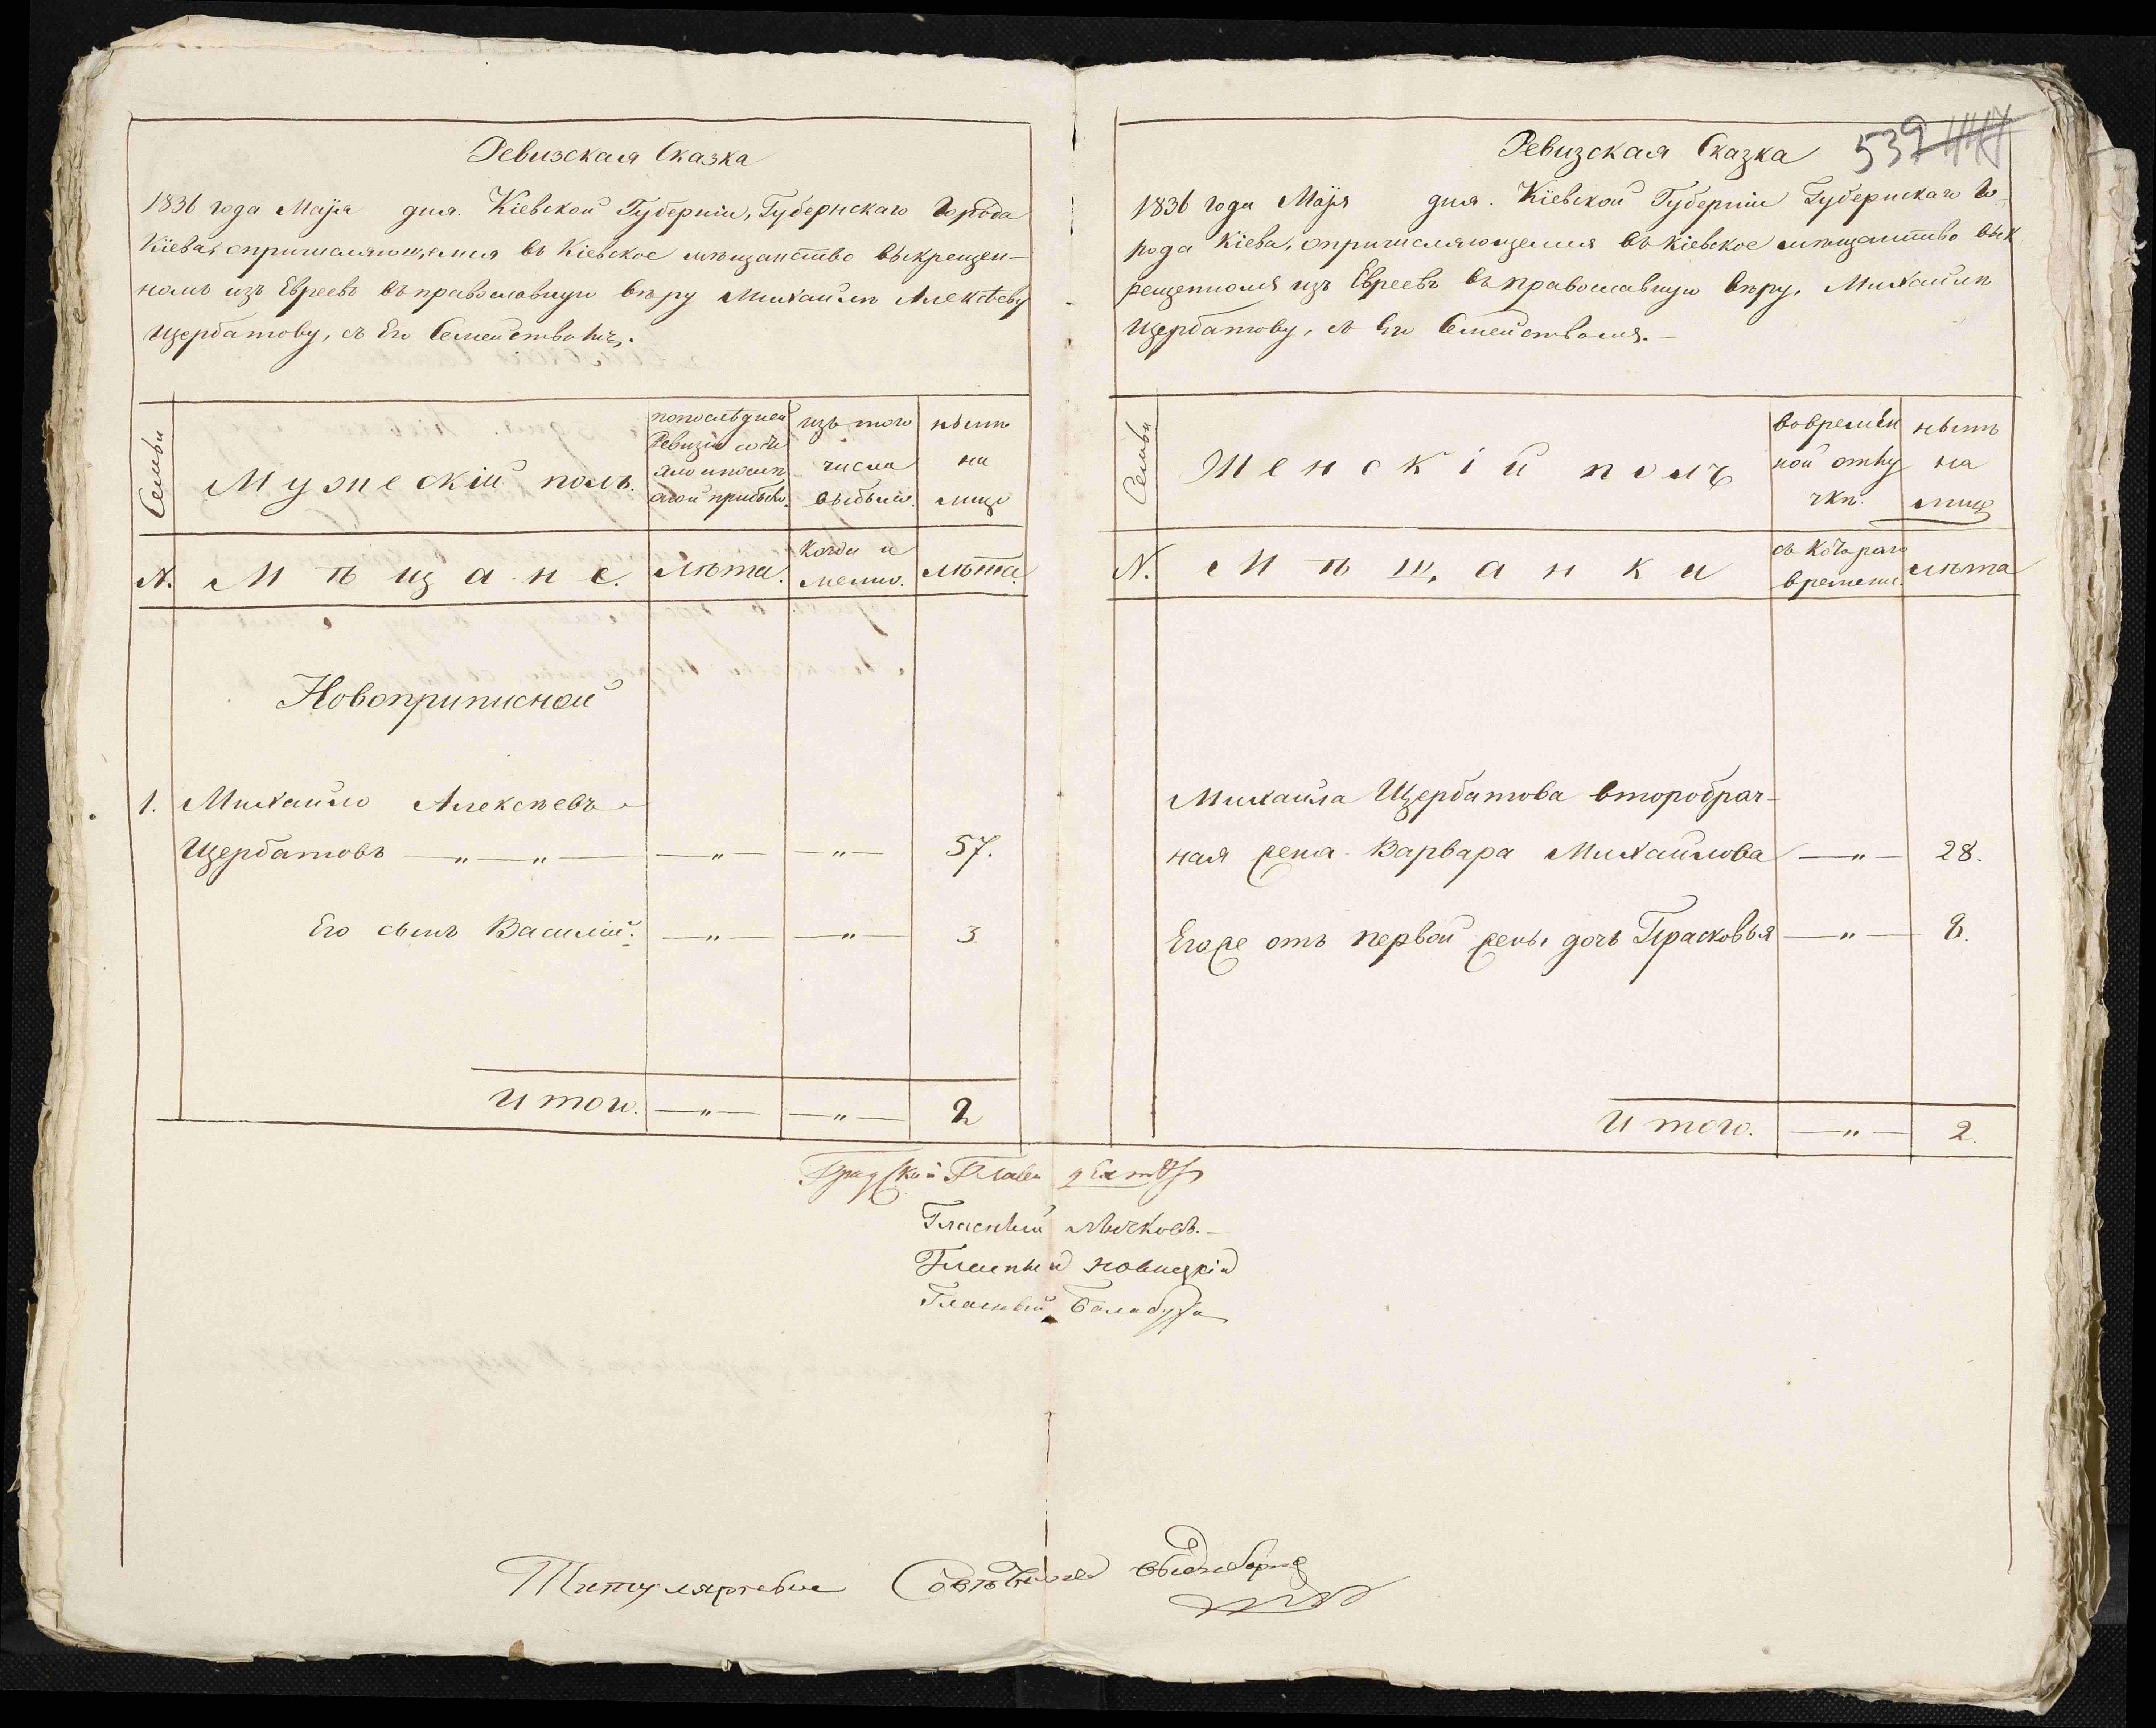 Ревизская Сказка
1836 года Маія дня. Кіевской Губерніи, Губернскаго Города
Кіева, опричисляющемся въ Кіевское мѣщанство выкрещен-
номъ изъ Евреевъ въ православную вѣру Михаилѣ Алексѣеву
Щербатову, съ Его Семействомъ.
Семьи
Мужескій полъ.
по послѣдней
Ревизіи состо
яло и послѣ
оной прибыло.
изъ того
числа
выбыло.
нынѣ
на
лицо
N.
Мѣщане.
Лѣта.
Когда и
Лѣта.
Новоприписной
1. Михайло Алексѣевъ
Щербатовъ — „ — „ — — „ — — „ — 57.
Его сынъ Василій. — „ — — „ — 3
Итого. — „ — — „ — 2
539
Ревизская Сказка
1836 года Маія дня. Кіевской Губерніи Губернскаго Го-
рода Кіева, опричисляющемся въ Кіевское мѣщанство вык
рещенномъ изъ Евреевъ въ православную вѣру, Михаилѣ
Щербатову, съ Его Семействомъ. —
Семьи
Женскій полъ
во времен
ной отлу
чкѣ.
нынѣ
на
лицо
N.
Мѣщанки
съ котораго
времени.
лѣта
Михаила Щербатова второбрач-
ная жена Варвара Михайлова — „ — 28.
Его же отъ первой жены дочь Прасковья — „ — 8.
Итого. — „ — 2.
Градскій Глава
Гласный
Гласный Новицкій
Гласный Балабуха
Титулярный Совѣтникъ